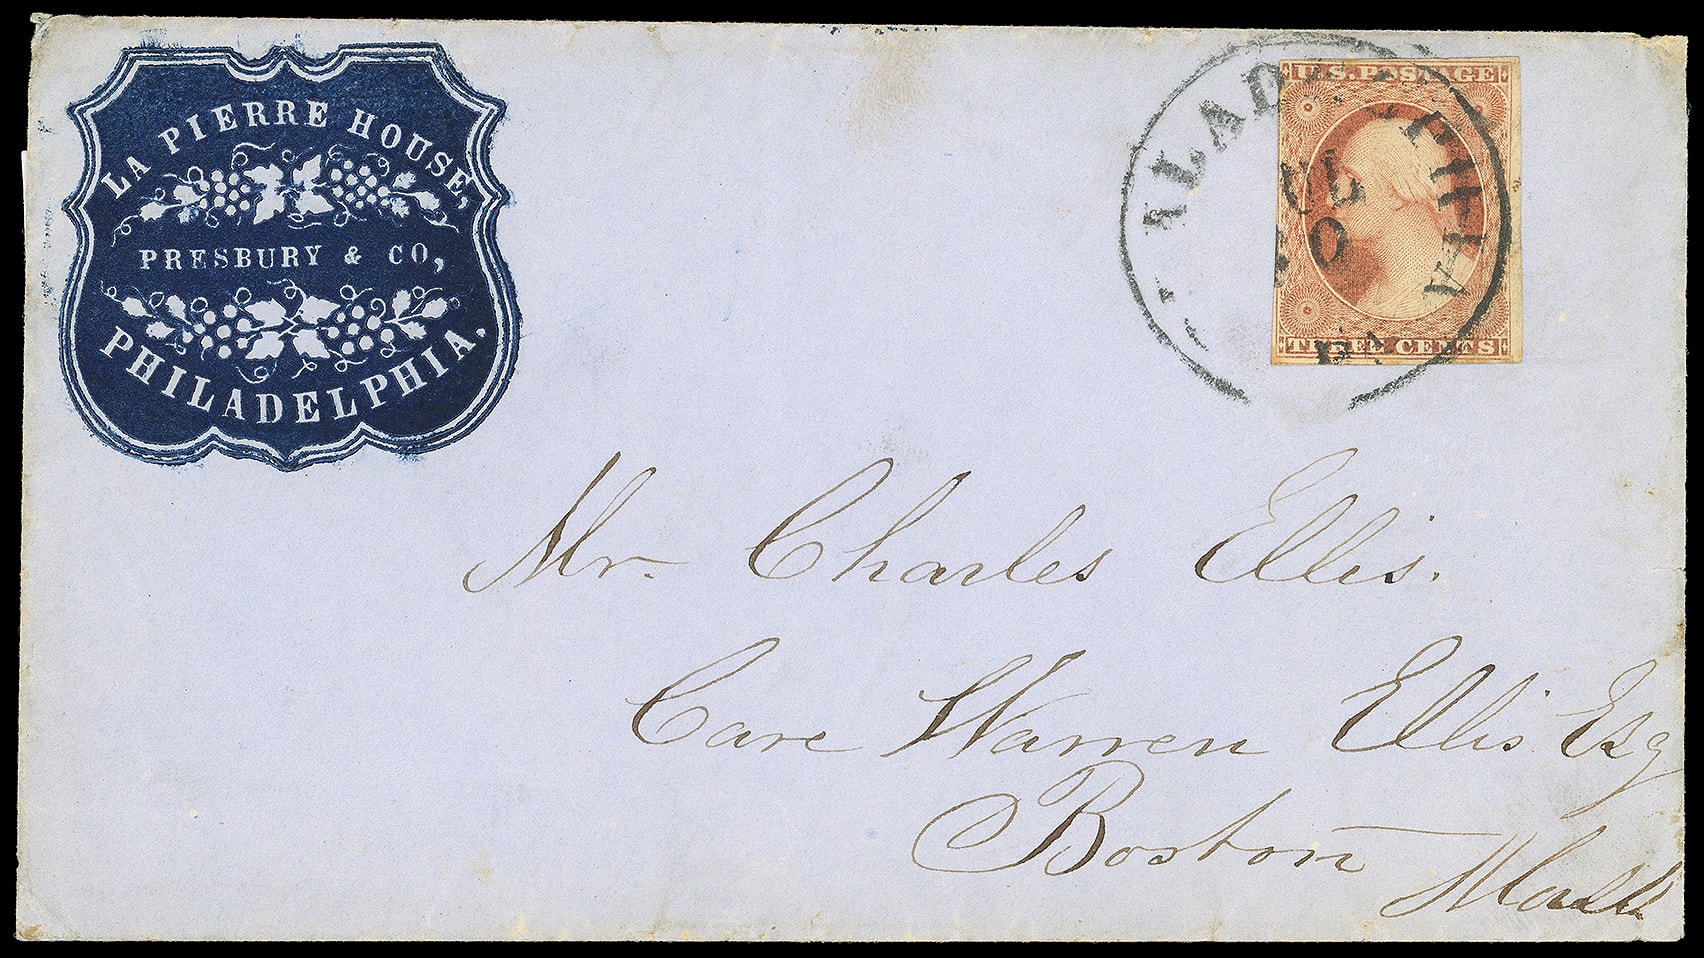 LA PIERRE HOUSE,
PRESBURY & CO,
PHILADELPHIA.
U.S. POSTAGE
THREE CENTS
PA
Mr. Charles Ellis.
Care Warren Ellis Esq
Boston
Mass